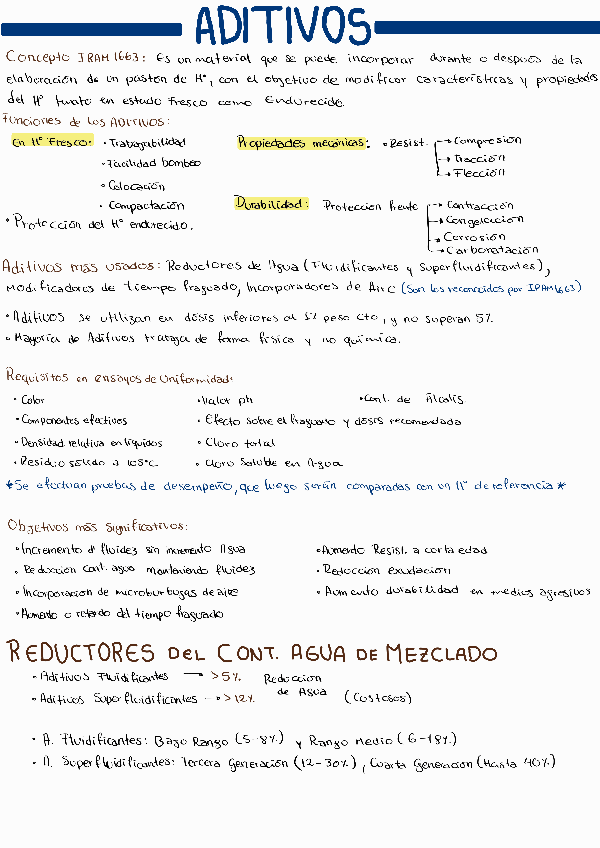 ADITIVOS
Concepto IRAM 1663: Es un material que se puede incorporar durante o después de la
elaboración de un pastón de H°, con el objetivo de modificar características y propiedades
del H° tanto en estado fresco como Endurecido.
Funciones de los Aditivos:
En H° Fresco: • Trabajabilidad
• Facilidad bombeo
• Colocación
• Compactación
• Protección del H° endurecido.
Propiedades mecánicas: • Resist. → Compresión
→ Tracción
→ Flección
Durabilidad: Protección frente → Contracción
→ Congelación
→ Corrosión
→ Carbonatación
Aditivos más usados: Reductores de Agua (Fluidificantes y Superfluidificantes),
modificadores de tiempo fraguado, Incorporadores de Aire (Son los reconocidos por IRAM 1663)
• Aditivos se utilizan en dosis inferiores al 5% peso Cto, y no superan 5%.
• Mayoría de Aditivos trabaja de forma física y no química.
Requisitos en ensayos de Uniformidad:
• Color
• Componentes efectivos
• Densidad relativa en líquidos
• Residuo sólido a 105°C
• Valor ph
• Efecto sobre el fraguado y dosis recomendada
• Cloro total
• Cloro Soluble en Agua
• Cont. de Álcalis
*Se efectúan pruebas de desempeño, que luego serán comparadas con un H° de referencia*
Objetivos más significativos:
• Incremento d' fluidez sin incremento Agua
• Reducción Cont. agua manteniendo fluidez
• Incorporación de microburbujas de aire
• Aumento o retardo del tiempo fraguado
• Aumento Resist. a corta edad
• Reducción exudación
• Aumento durabilidad en medios agresivos
REDUCTORES DEL CONT. AGUA DE MEZCLADO
• Aditivos Fluidificantes → >5% Reducción
• Aditivos Superfluidificantes → >12% de Agua (Costosos)
• A. Fluidificantes: Bajo Rango (5-8%) y Rango Medio (6-18%)
• A. Superfluidificantes: Tercera Generación (12-30%), Cuarta Generación (Hasta 40%)